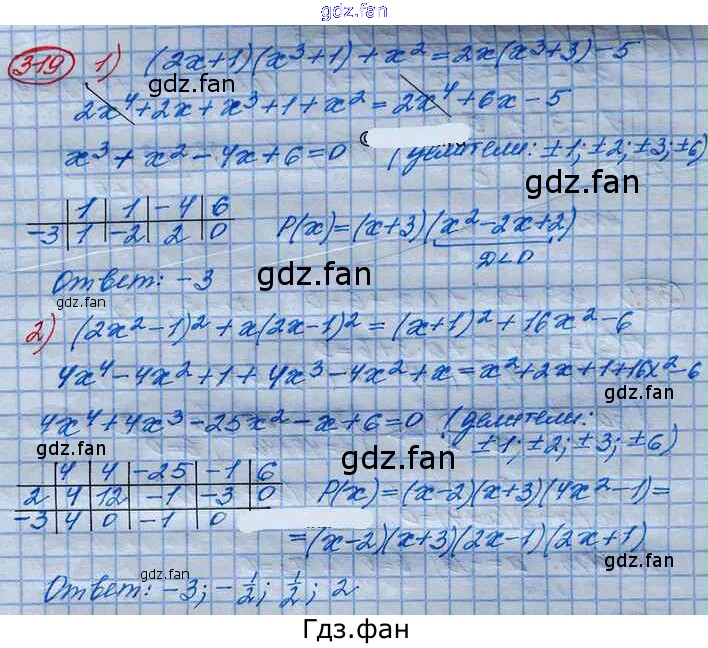 gdz.fan
319 1) (2x+1)(x³+1)+x²=2x(x³+3)-5
gdz.fan gdz.fan
2x⁴+2x+x³+1+x²=2x⁴+6x-5
x³+x²-4x+6=0 (делители: ±1; ±2; ±3; ±6)
gdz.fan
1 | 1 | -4 | 6
-3 | 1 | -2 | 2 | 0 P(x)=(x+3)(x²-2x+2)
D<0
gdz.fan
Ответ: -3
gdz.fan
2) (2x²-1)²+x(2x-1)²=(x+1)²+16x²-6
4x⁴-4x²+1+4x³-4x²+x=x²+2x+1+16x²-6
gdz.fan
4x⁴+4x³-25x²-x+6=0 (делители:
±1; ±2; ±3; ±6)
gdz.fan
4 | 4 | -25 | -1 | 6
2 | 4 | 12 | -1 | -3 | 0 P(x)=(x-2)(x+3)(4x²-1)=
-3 | 4 | 0 | -1 | 0
gdz.fan
=(x-2)(x+3)(2x-1)(2x+1)
gdz.fan
Ответ: -3; -1/2; 1/2; 2.
gdz.fan
Гдз.фан